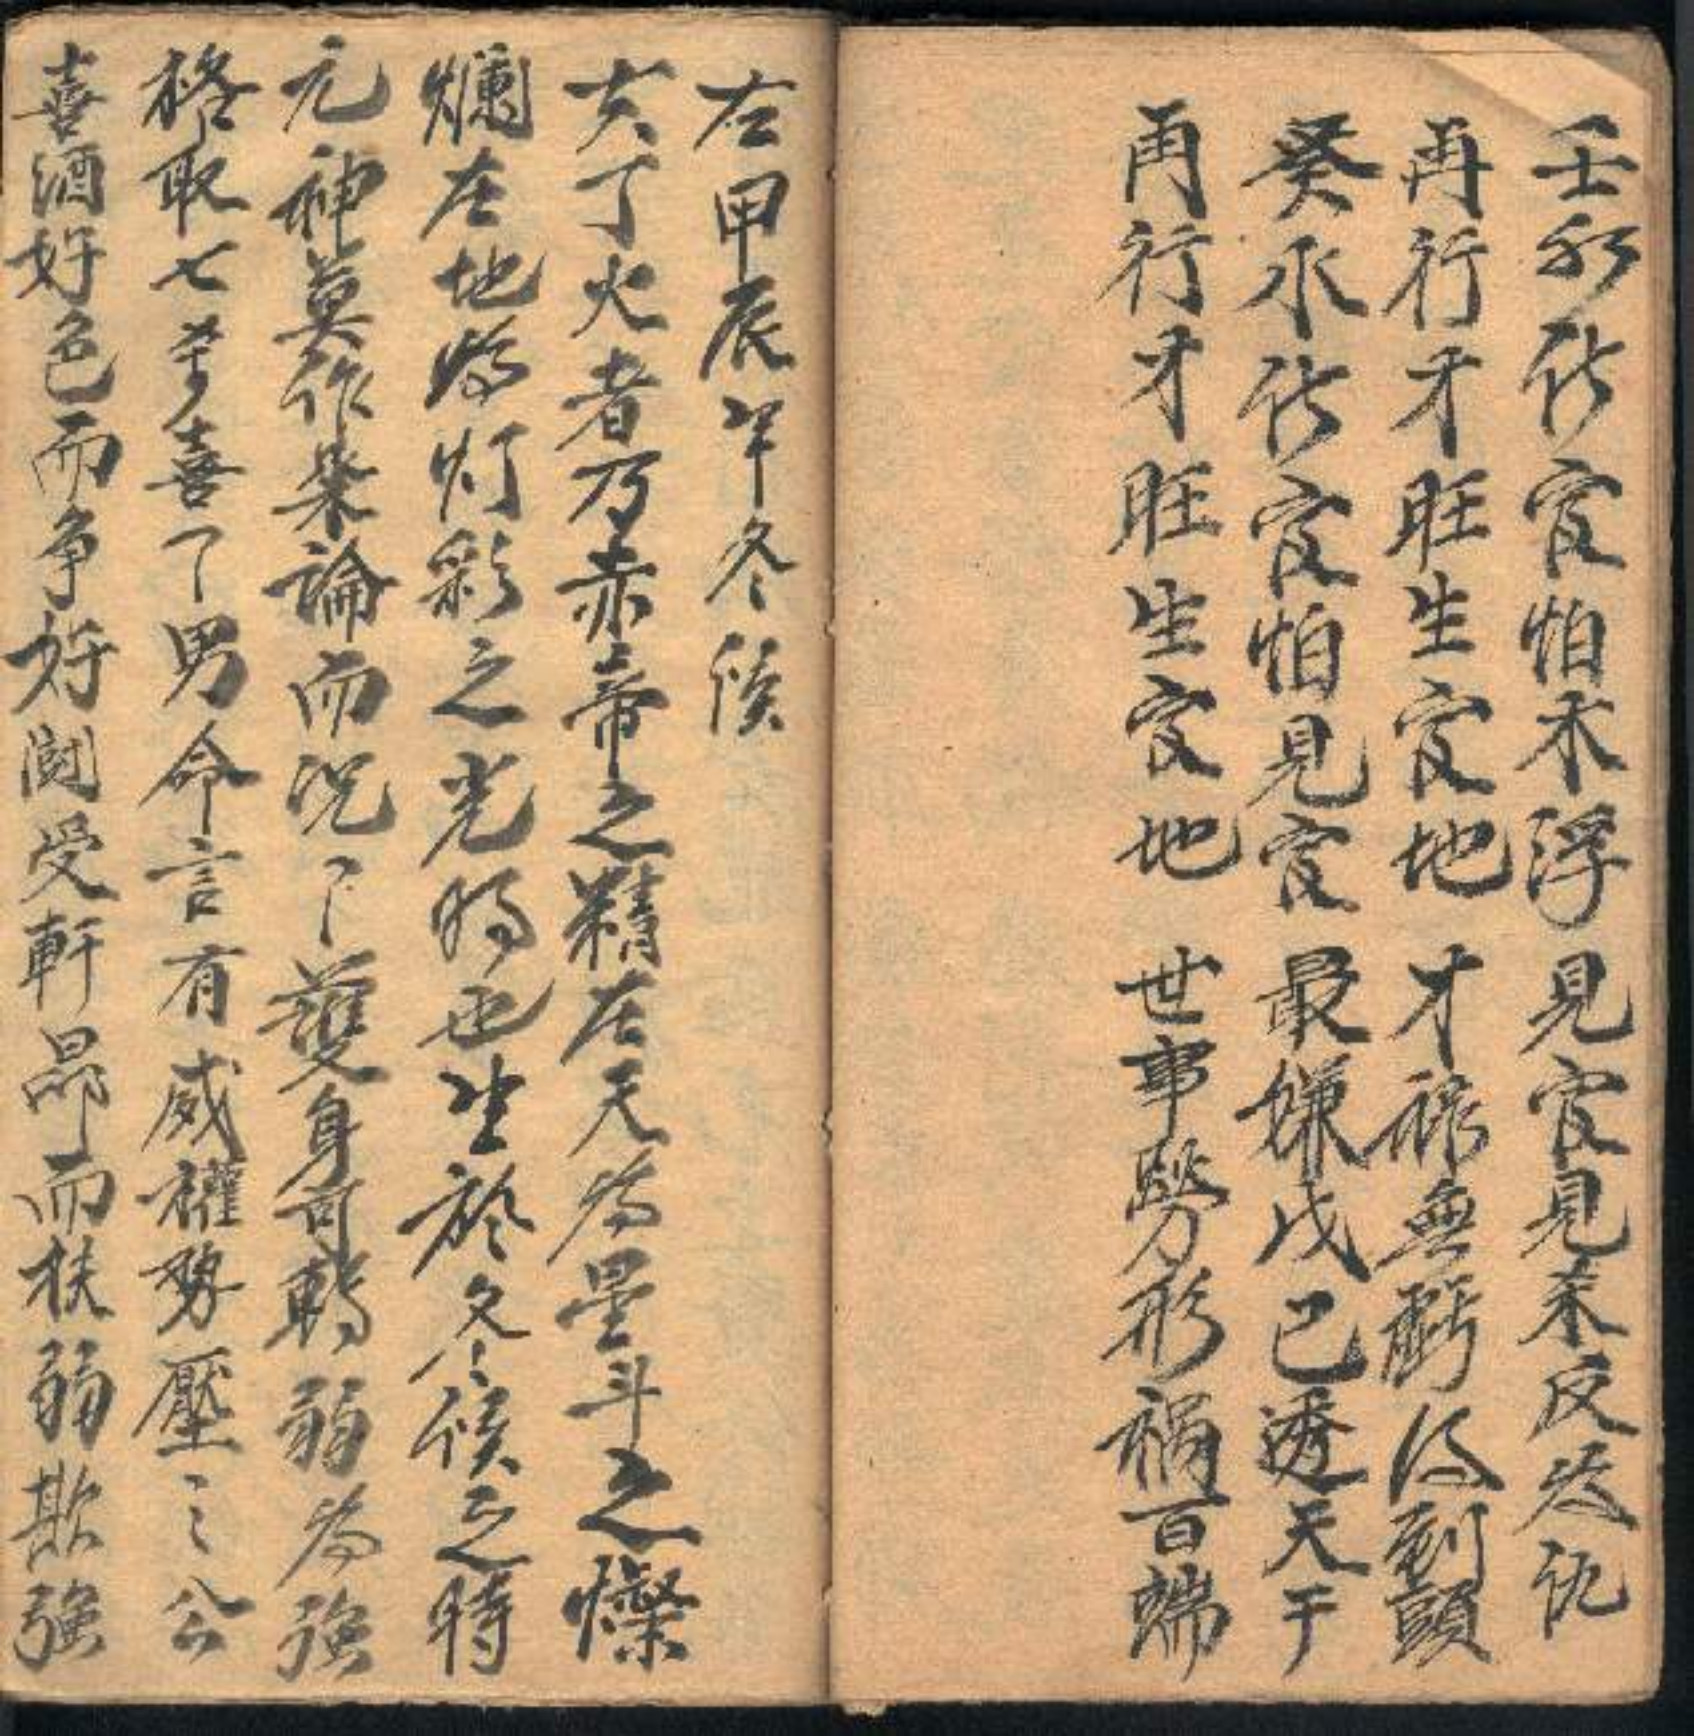 壬水伤官怕木浮 見官見未反失仇
再行才旺生官地 才禄無虧得到頭
癸水伤官怕見官 最嫌戊己透天干
再行才旺生官地 世事勞形禍百端
右甲辰年冬候
夫丁火者乃赤帝之精在天為星斗之燦
爛在地為灯彩之光明也生於冬候之時
元神莫作柴論而况丁護身可轉弱為強
格取七喜丁男命言有威權勢壓公
喜酒好色而争好闘受軒昂而扶弱欺強